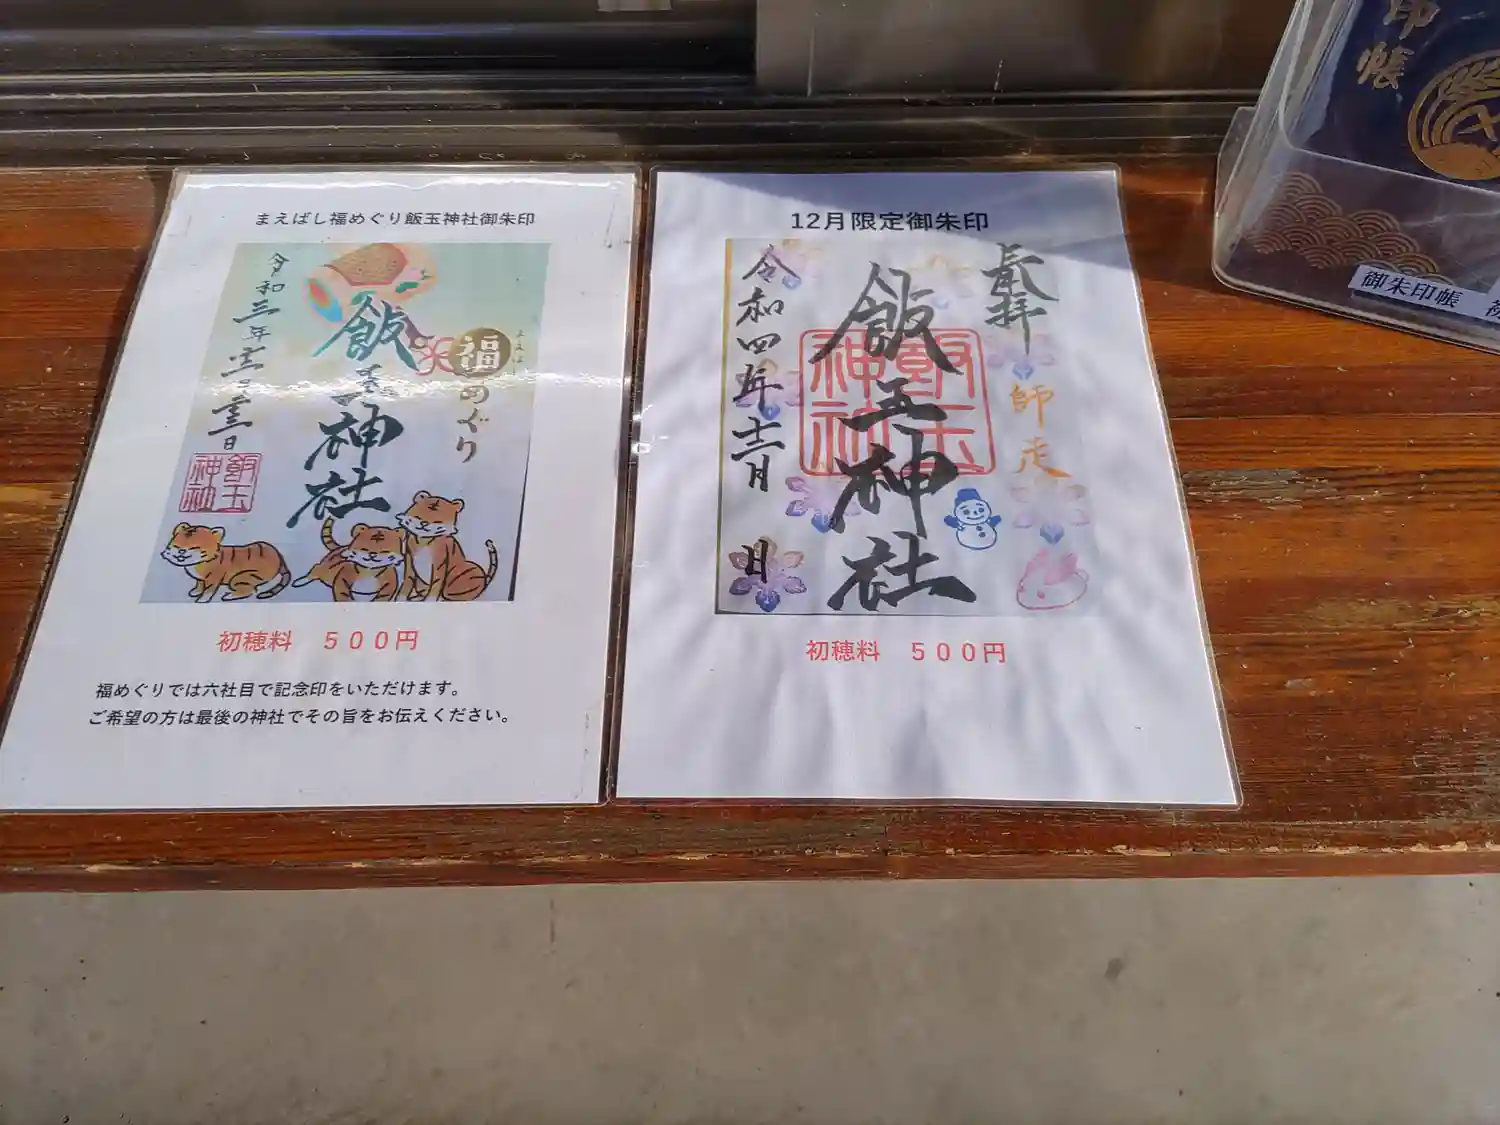 まえばし福めぐり飯玉神社御朱印
福めぐり
飯玉神社
令和三年
飯玉神社
初穂料 500円
福めぐりでは六社目で記念印をいただけます。
ご希望の方は最後の神社でその旨をお伝えください。
12月限定御朱印
奉拝
師走
飯玉神社
飯玉神社
令和四年十二月 日
初穂料 500円
印帳
御朱印帳